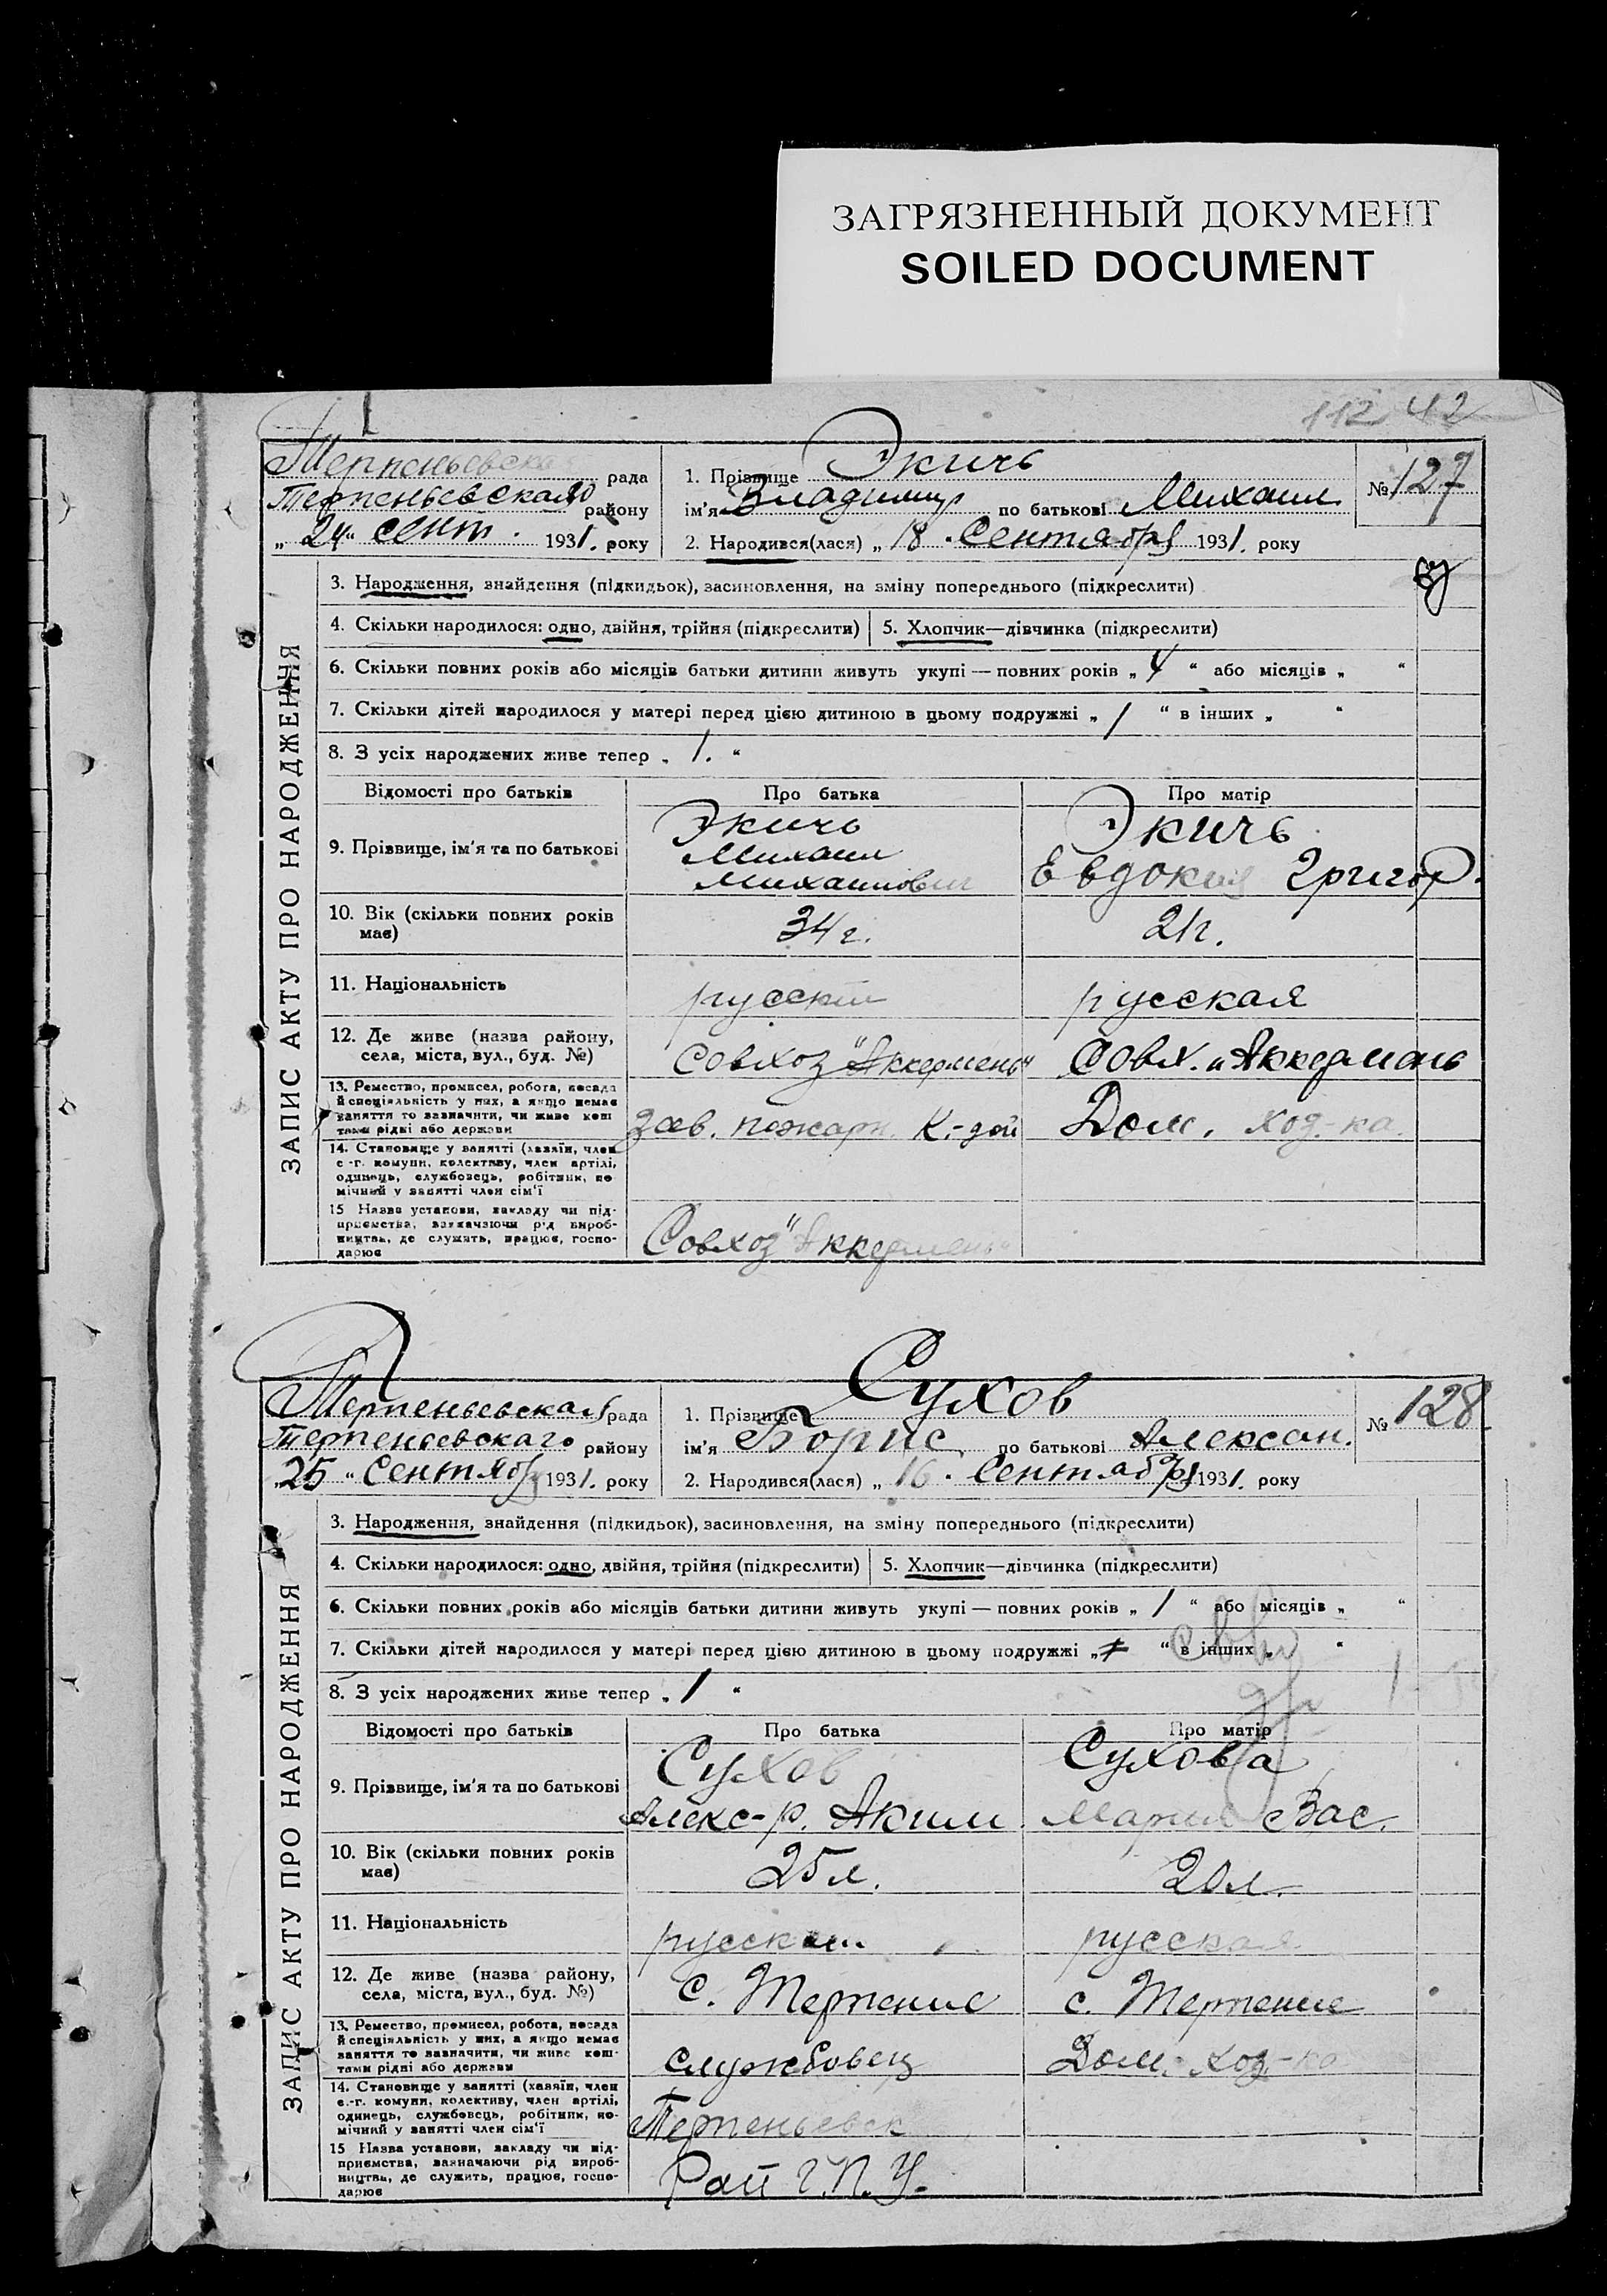 ЗАГРЯЗНЕННЫЙ ДОКУМЕНТ
SOILED DOCUMENT
112 42
ЗАПИС АКТУ ПРО НАРОДЖЕННЯ
Терпеньевская рада
Терпеньевскаго району
„24“ сент. 1931. року
1. Прізвище Экичь
ім'я Владимир по батькові Михаил
2. Народився(лася) „18. Сентября 1931. року
№ 127
3. Народження, знайдення (підкидьок), засиновлення, на зміну попереднього (підкреслити)
4. Скільки народилося: одно, двійня, трійня (підкреслити) 5. Хлопчик—дівчинка (підкреслити)
6. Скільки повних років або місяців батьки дитини живуть укупі — повних років „ 4 “ або місяців „ “
7. Скільки дітей народилося у матері перед цією дитиною в цьому подружжі „ 1 “ в інших „ “
8. З усіх народжених живе тепер „ 1. “
Відомості про батьків Про батька Про матір
9. Прізвище, ім'я та по батькові
Экичь
Михаил
Михаилович
Экичь
Евдокия Григор.
10. Вік (скільки повних років має)
34 г. 21 г.
11. Національність
русский русская
12. Де живе (назва району,
села, міста, вул., буд. №)
Совхоз "Аккермень" Совх. „Аккермень
13. Ремество, промисел, робота, посада
й спеціяльність у них, а якщо немає
заняття то зазначити, чи живе кош
тами рідні або держави
Зав. пожарн. К-дой Дом. хоз-ка.
14. Становище у занятті (хазяїн, член
с.-г. комуни, колективу, член артілі,
одинець, службовець, робітник, по
мічний у занятті член сім'ї
15 Назва установи, закладу чи під-
приємства, зазначаючи рід вироб-
ництва, де служить, працює, госпо-
дарює
Совхоз "Аккермень"
ЗАПИС АКТУ ПРО НАРОДЖЕННЯ
Терпеньевская рада
Терпеньевскаго району
„25“ Сентября 1931. року
1. Прізвище Сухов
ім'я Борис по батькові Алексан.
2. Народився(лася) „16. Сентября 1931. року
№ 128
3. Народження, знайдення (підкидьок), засиновлення, на зміну попереднього (підкреслити)
4. Скільки народилося: одно, двійня, трійня (підкреслити) 5. Хлопчик—дівчинка (підкреслити)
6. Скільки повних років або місяців батьки дитини живуть укупі — повних років „ 1 “ або місяців „ “
7. Скільки дітей народилося у матері перед цією дитиною в цьому подружжі „ “ в інших „ “
8. З усіх народжених живе тепер „ 1 “
Відомості про батьків Про батька Про матір
9. Прізвище, ім'я та по батькові
Сухов
Алекс-р. Аким
Сухова
Мария Вас.
10. Вік (скільки повних років
має)
25 л. 20 л.
11. Національність
русский русская
12. Де живе (назва району,
села, міста, вул., буд. №)
с. Терпение с. Терпение
13. Ремество, промисел, робота, посада
й спеціяльність у них, а якщо немає
заняття то зазначити, чи живе кош-
тами рідні або держави
службовец Дом. хоз-ка
14. Становище у занятті (хазяїн, член
с.-г. комуни, колективу, член артілі,
одинець, службовець, робітник, по-
мічний у занятті член сім'ї
15 Назва установи, закладу чи під-
приємства, зазначаючи рід вироб-
ництва, де служить, працює, госпо-
дарює
Терпеньевск
Рай Г.П.У.